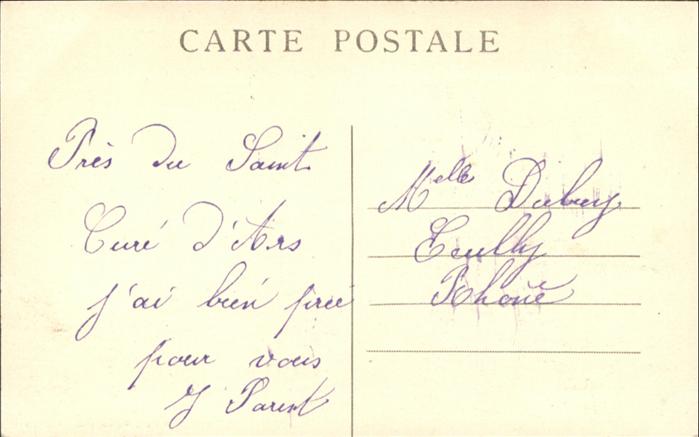 CARTE POSTALE
Près du Saint
Curé d'Ars
j'ai bien prié
pour vous
J Parent
Melle Dubuy
Ecully
Rhône